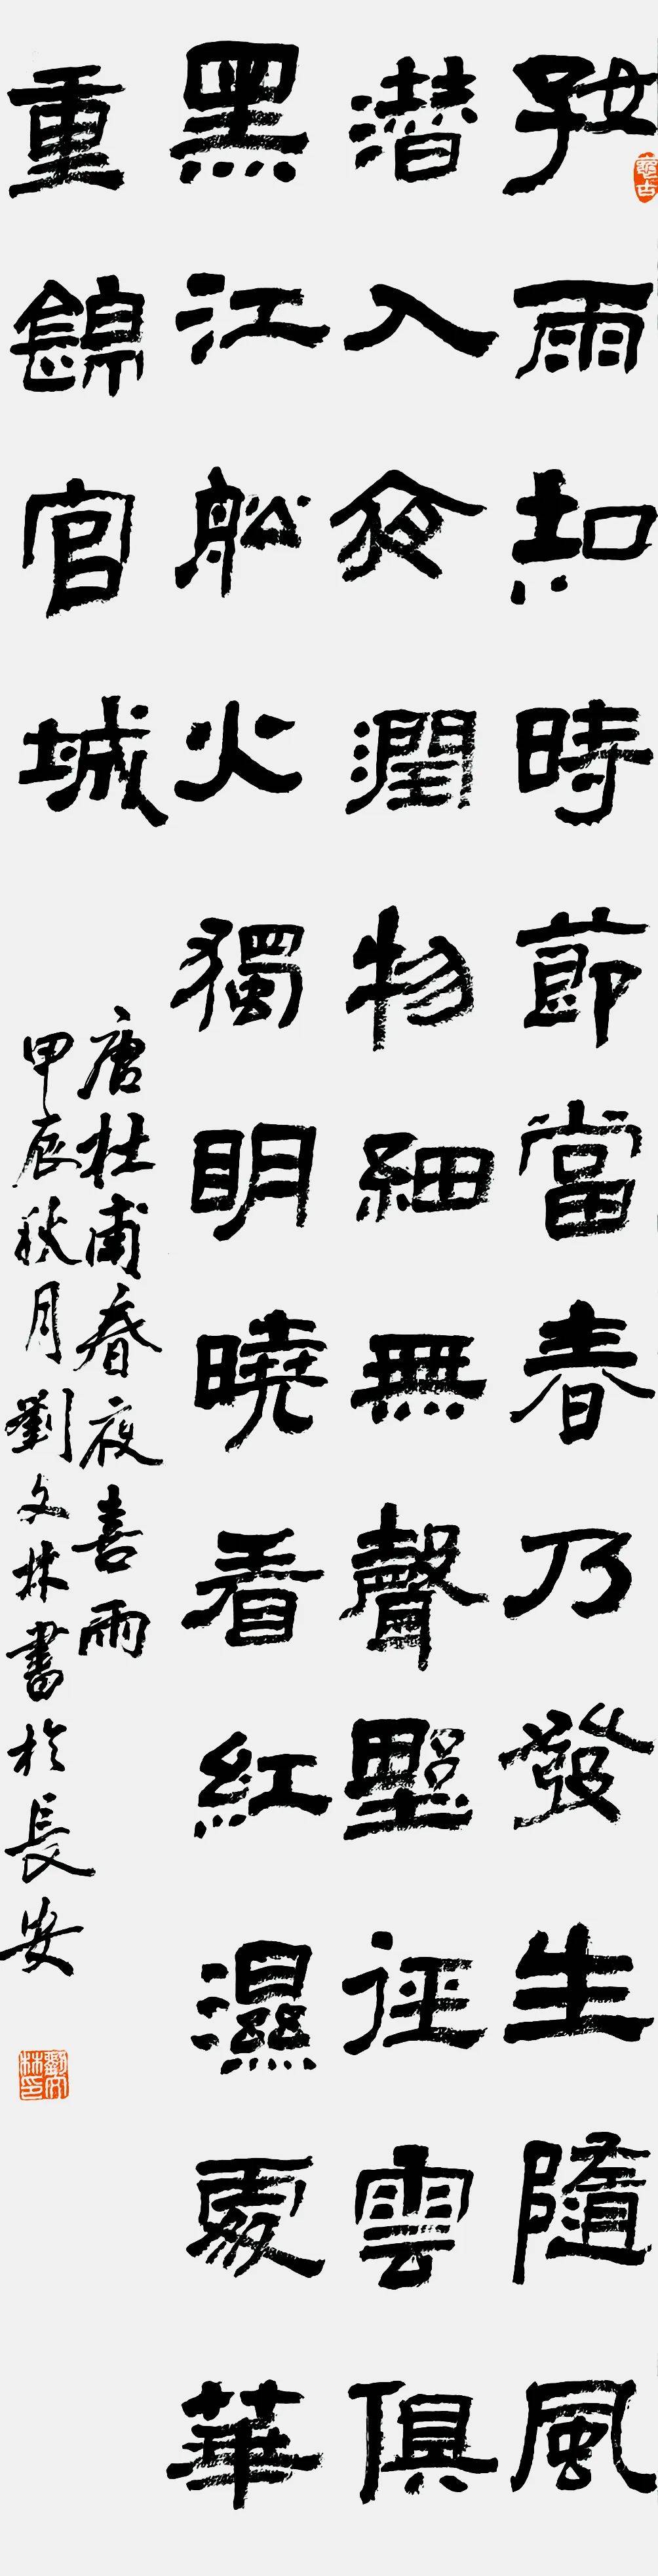 好雨知時節當春乃發生隨風
潜入夜潤物細無聲野徑雲俱
黑江船火獨眀曉看紅濕處華
重錦官城
唐杜甫春夜喜雨
甲辰秋月劉文林書於長安
劉文林印